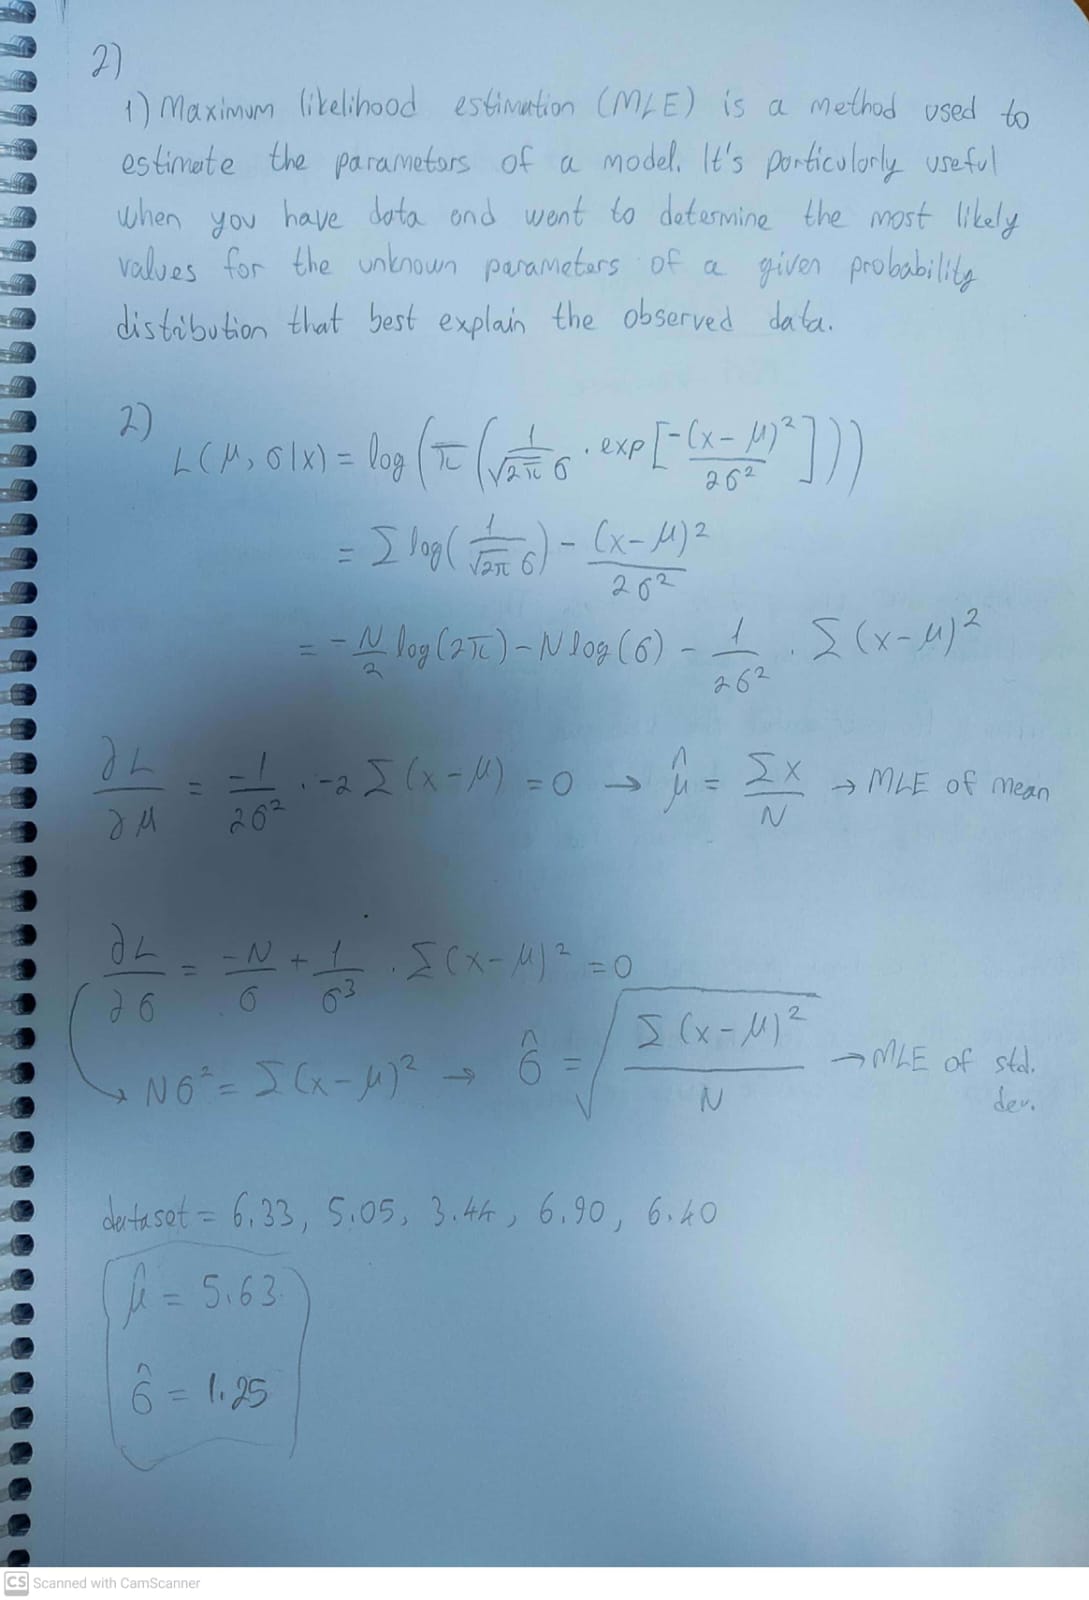 2)
1) Maximum likelihood estimation (MLE) is a method used to
estimate the parameters of a model. It's particularly useful
when you have data and want to determine the most likely
values for the unknown parameters of a given probability
distribution that best explain the observed data.
2)
L(μ, σ|x) = log(π(1/√2π σ · exp[-(x-μ)²/2σ²]))
= Σ log(1/√2π σ) - (x-μ)²/2σ²
= -N/2 log(2π) - N log(σ) - 1/2σ² · Σ(x-μ)²
∂L/∂μ = -1/2σ² · -2 Σ(x-μ) = 0 → μ̂ = Σx/N → MLE of mean
∂L/∂σ = -N/σ + 1/σ³ · Σ(x-μ)² = 0
→ Nσ² = Σ(x-μ)² → σ̂ = √(Σ(x-μ)²/N) → MLE of std.
dev.
dataset = 6.33, 5.05, 3.44, 6.90, 6.40
μ̂ = 5.63
σ̂ = 1.25
CS Scanned with CamScanner